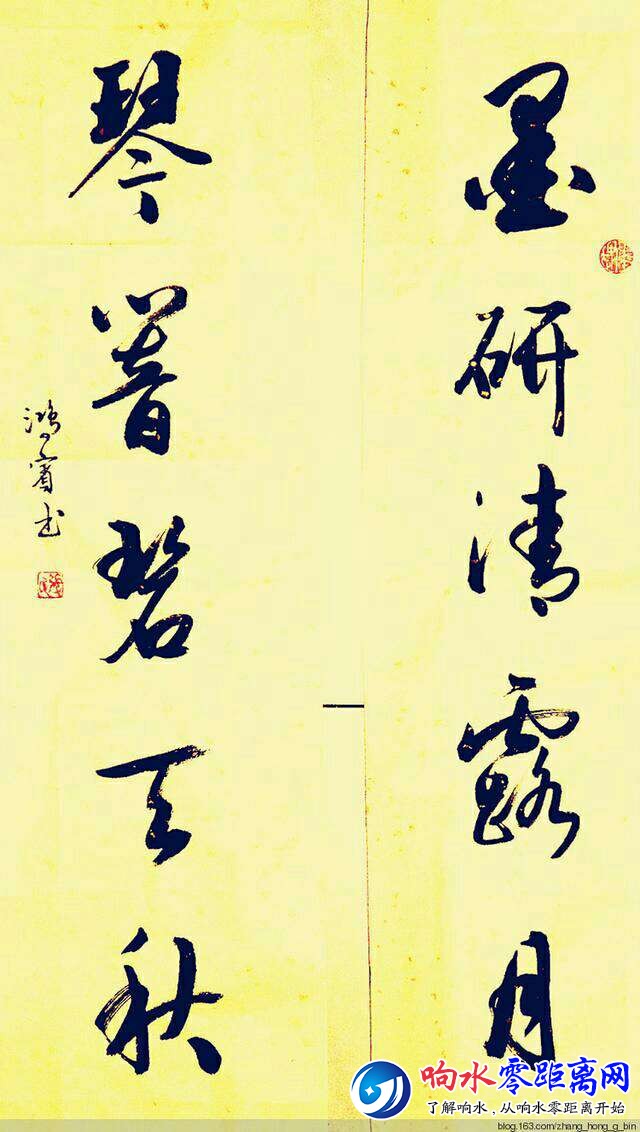 墨研清露月
琴響碧天秋
鴻賓书
响水零距离网
了解响水,从响水零距离开始
blog.163.com/zhang_hong_g_bin